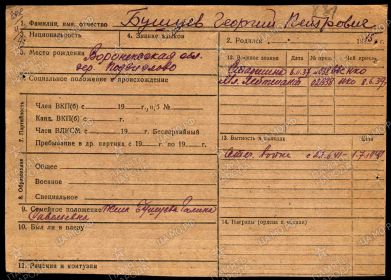 1. Фамилия, имя, отчество Бушуев Георгий Петрович
3. Национальность
4. Знание языков
2. Родился 1915 г.
5. Место рождения Воронежская обл.
дер.
6. Социальное положение и происхождение
7. Партийность
Член ВКП(б) с 19 г., п/б №
Канд. ВКП(б) с 19 г.
Член ВЛКСМ с 19 г. Беспартийный
Пребывание в др. партиях с 19 г. по 19 г.
8. Образование
Общее
Военное
Специальное
9. Семейное положение жена Бушуева Галина
Савельевна
10. Был ли в плену
11. Ранения и контузии
12. Военное звание № приказа
Мл. лейтенант НКО 8.6.39
13. Бытность в походах
Отеч. война с
14. Награды (ордена и медали)